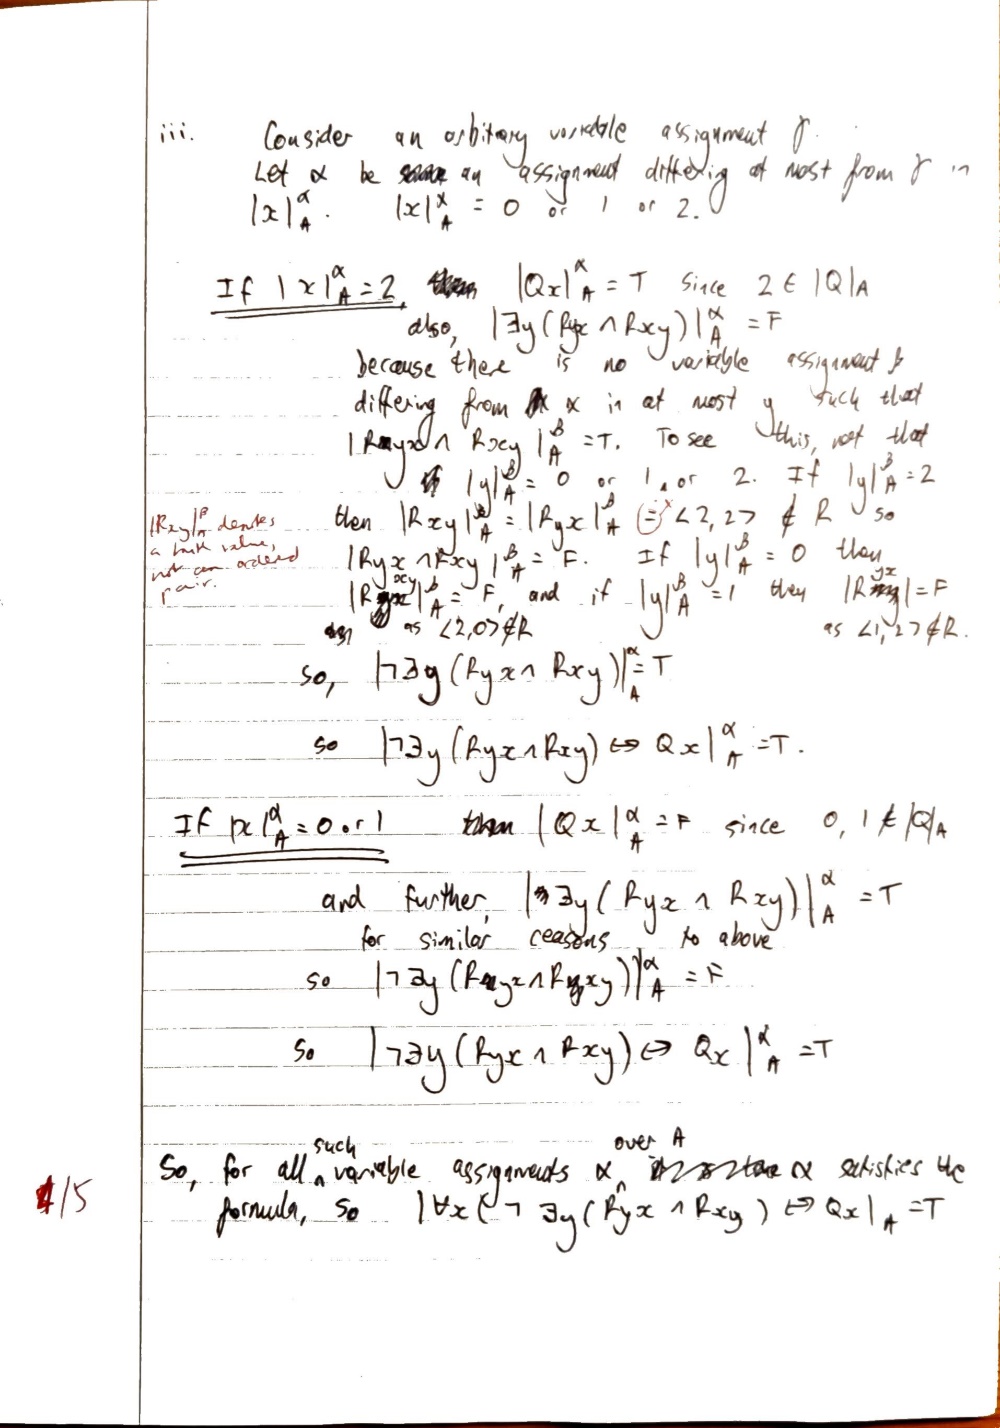 iii. Consider an arbitrary variable assignment γ.
Let α be an assignment differing at most from γ in
|x|^α_A. |x|^α_A = 0 or 1 or 2.
If |x|^α_A = 2, |Qx|^α_A = T since 2 ∈ |Q|_A
also, |∃y(Ryx ∧ Rxy)|^α_A = F
because there is no variable assignment β
differing from α in at most y such that
|Ryx ∧ Rxy|^β_A = T. To see this, not that
|y|^β_A = 0 or 1, or 2. If |y|^β_A = 2
then |Rxy|^β_A = |Ryx|^β_A = <2,2> ∉ R so
|Rxy|^β_A denotes
a truth value,
not an ordered
pair.
|Ryx ∧ Rxy|^β_A = F. If |y|^β_A = 0 then
|Rxy|^β_A = F, and if |y|^β_A = 1 then |Ryx| = F
as <2,0> ∉ R as <1,2> ∉ R.
so, |¬∃y(Ryx ∧ Rxy)|^α_A = T
so |¬∃y(Ryx ∧ Rxy) ↔ Qx|^α_A = T.
If |x|^α_A = 0 or 1 then |Qx|^α_A = F since 0, 1 ∉ |Q|_A
and further, |∃y(Ryx ∧ Rxy)|^α_A = T
for similar reasons to above
so |¬∃y(Ryx ∧ Rxy)|^α_A = F
so |¬∃y(Ryx ∧ Rxy) ↔ Qx|^α_A = T
So, for all such variable assignments α over A, α satisfies the
4/5
formula, so |∀x(¬∃y(Ryx ∧ Rxy) ↔ Qx|_A = T